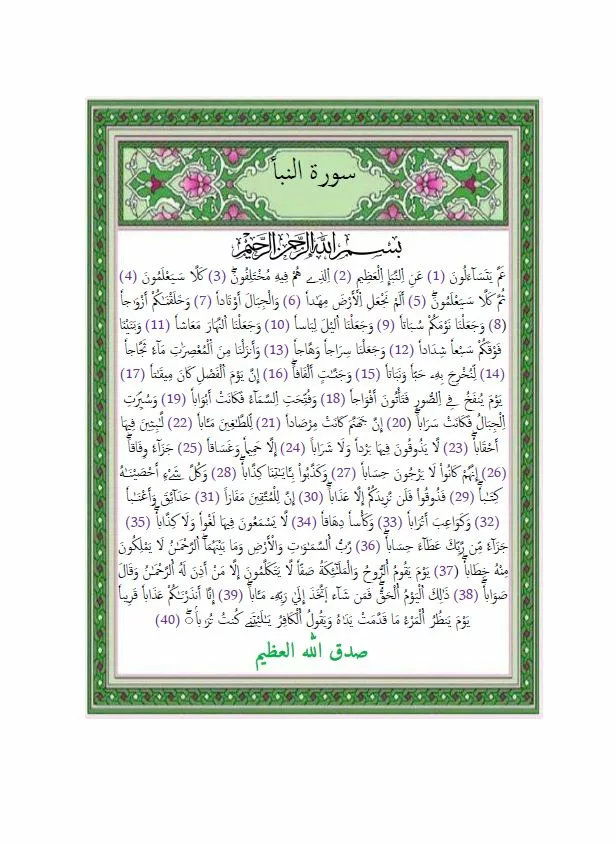 سورة النبأ
بِسْمِ اللهِ الرَّحْمٰنِ الرَّحِيمِ
عَمَّ يَتَسَآءَلُونَ (1) عَنِ اِ۬لنَّبَإِ اِ۬لْعَظِيمِ (2) اِ۬لذِے هُمْ فِيهِ مُخْتَلِفُونَۖ (3) كَلَّا سَيَعْلَمُونَ (4)
ثُمَّ كَلَّا سَيَعْلَمُونَۖ (5) أَلَمْ نَجْعَلِ اِ۬لْأَرْضَ مِهَٰداٗ (6) وَالْجِبَالَ أَوْتَاداٗ (7) وَخَلَقْنَٰكُمُۥٓ أَزْوَٰجاٗ
(8) وَجَعَلْنَا نَوْمَكُمْ سُبَاتاٗ (9) وَجَعَلْنَا اَ۬ليْلَ لِبَاساٗ (10) وَجَعَلْنَا اَ۬لنَّهَارَ مَعَاشاٗ (11) وَبَنَيْنَا
فَوْقَكُمْ سَبْعاٗ شِدَاداٗ (12) وَجَعَلْنَا سِرَاجاٗ وَهَّاجاٗ (13) وَأَنزَلْنَا مِنَ اَ۬لْمُعْصِرَٰتِ مَآءٗ ثَجَّاجاٗ
(14) لِّنُخْرِجَ بِهِۦ حَبّاٗ وَنَبَاتاٗ (15) وَجَنَّٰتٍ أَلْفَافاًۖ (16) إِنَّ يَوْمَ اَ۬لْفَصْلِ كَانَ مِيقَٰتاٗ (17)
يَوْمَ يُنفَخُ فِے اِ۬لصُّورِ فَتَأْتُونَ أَفْوَاجاٗ (18) وَفُتِّحَتِ اِ۬لسَّمَآءُ فَكَانَتْ أَبْوَٰباٗ (19) وَسُيِّرَتِ
اِ۬لْجِبَالُ فَكَانَتْ سَرَاباًۖ (20) إِنَّ جَهَنَّمَ كَانَتْ مِرْصَاداٗ (21) لِّلطَّٰغِينَ مَـَٔاباٗ (22) لَّٰبِثِينَ فِيهَآ
أَحْقَاباٗۖ (23) لَّا يَذُوقُونَ فِيهَا بَرْداٗ وَلَا شَرَاباً (24) إِلَّا حَمِيماٗ وَغَسَاقاٗ (25) جَزَآءٗ وِفَاقاًۖ
(26) إِنَّهُمْ كَانُواْ لَا يَرْجُونَ حِسَاباٗ (27) وَكَذَّبُواْ بِـَٔايَٰتِنَا كِذَّاباٗۖ (28) وَكُلَّ شَےْءٍ أَحْصَيْنَٰهُ
كِتَٰباٗۖ (29) فَذُوقُواْ فَلَن نَّزِيدَكُمُۥٓ إِلَّا عَذَاباًۖ (30) إِنَّ لِلْمُتَّقِينَ مَفَازاً (31) حَدَآئِقَ وَأَعْنَٰباٗ
(32) وَكَوَاعِبَ أَتْرَاباٗ (33) وَكَأْساٗ دِهَاقاٗ (34) لَّا يَسْمَعُونَ فِيهَا لَغْواٗ وَلَا كِذَّاباٗۖ (35)
جَزَآءٗ مِّن رَّبِّكَ عَطَآءً حِسَاباٗۖ (36) رَّبُّ اُ۬لسَّمَٰوَٰتِ وَالْأَرْضِ وَمَا بَيْنَهُمَاۖ اَ۬لرَّحْمَٰنُ لَا يَمْلِكُونَ
مِنْهُ خِطَاباٗۖ (37) يَوْمَ يَقُومُ اُ۬لرُّوحُ وَالْمَلَٰٓئِكَةُ صَفّاٗ لَّا يَتَكَلَّمُونَ إِلَّا مَنْ أَذِنَ لَهُ اُ۬لرَّحْمَٰنُ وَقَالَ
صَوَاباٗۖ (38) ذَٰلِكَ اَ۬لْيَوْمُ اُ۬لْحَقُّۖ فَمَن شَآءَ اَ۪تَّخَذَ إِلَىٰ رَبِّهِۦ مَـَٔاباًۖ (39) إِنَّآ أَنذَرْنَٰكُمْ عَذَاباٗ قَرِيباٗ
يَوْمَ يَنظُرُ اُ۬لْمَرْءُ مَا قَدَّمَتْ يَدَٰهُ وَيَقُولُ اُ۬لْكَافِرُ يَٰلَيْتَنِے كُنتُ تُرَٰباَۢۖ (40)
صدق الله العظيم